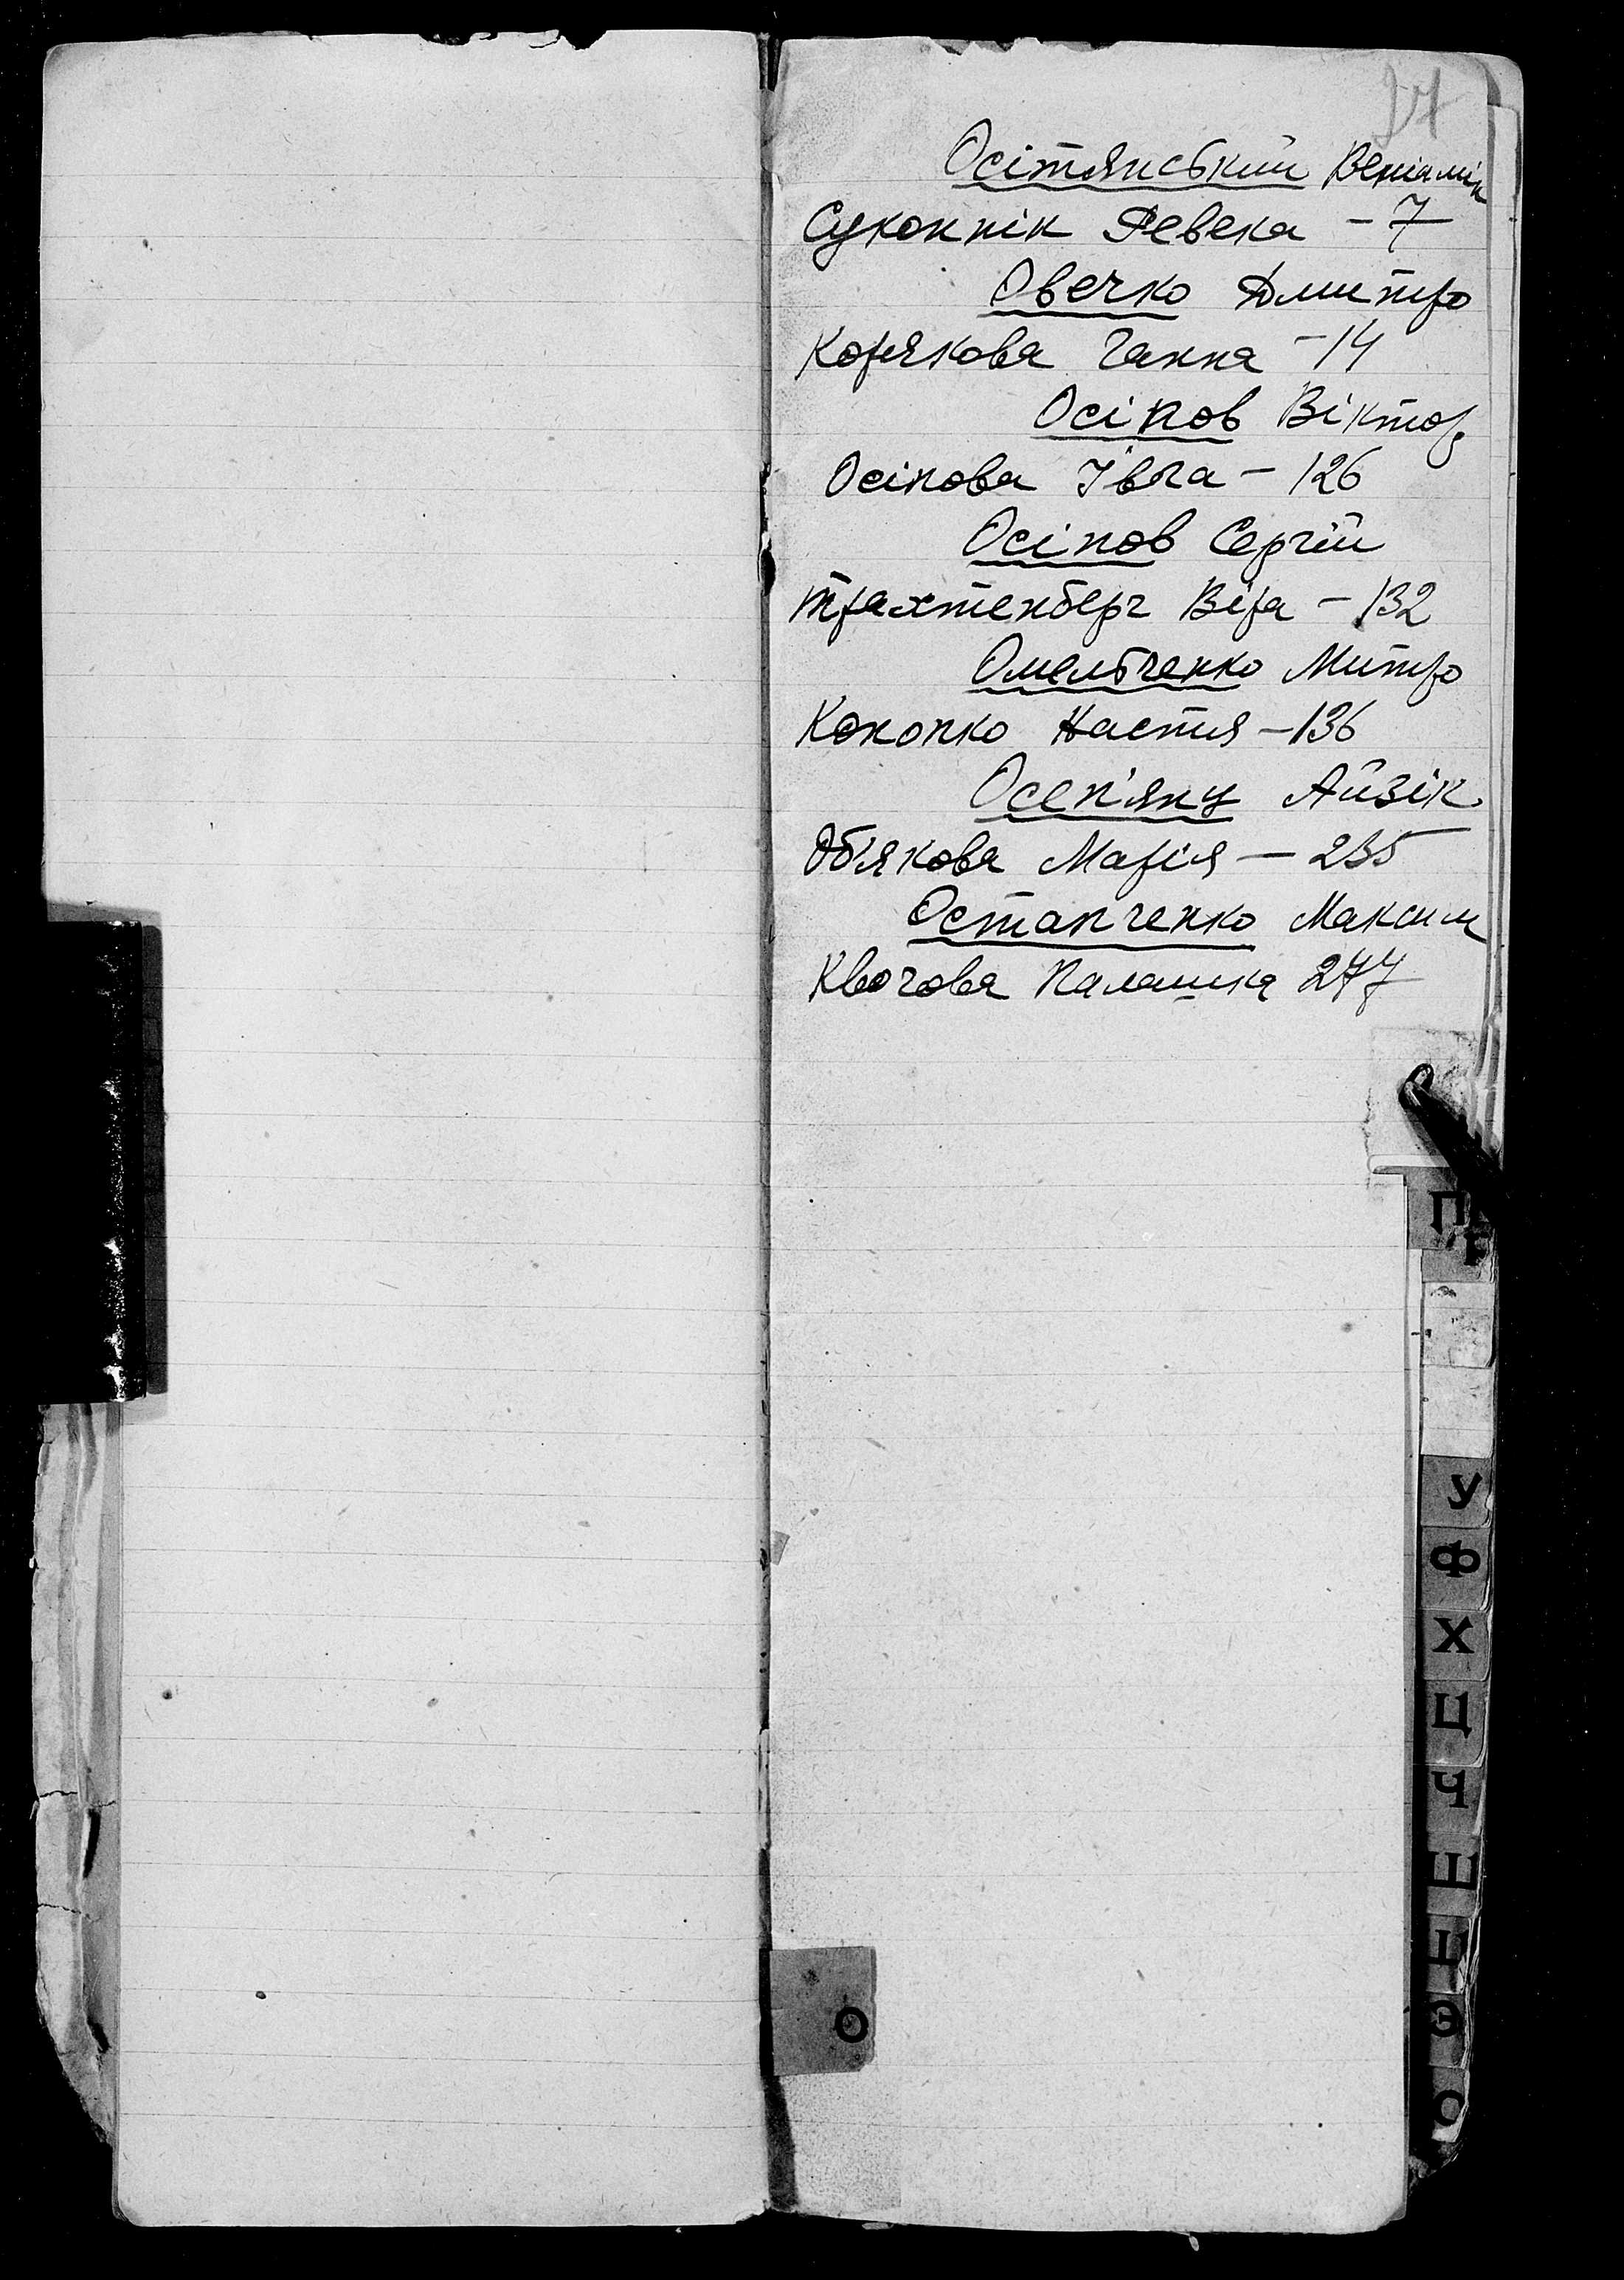 27
Осітянський Веніамін
Суконнік Ревека – 7
Овечко Дмитро
Корякова Ганна – 14
Осіпов Віктор
Осіпова Івга – 126
Осіпов Сергій
Трахтенберг Віра – 132
Омельченко Митро
Конопко Настя – 136
Осеп'янц Айзік
Об'якова Марія – 235
Остапченко Максим
Квочова Палашка 277
П
Р
У
Ф
Х
Ц
Ч
Ш
Э
О